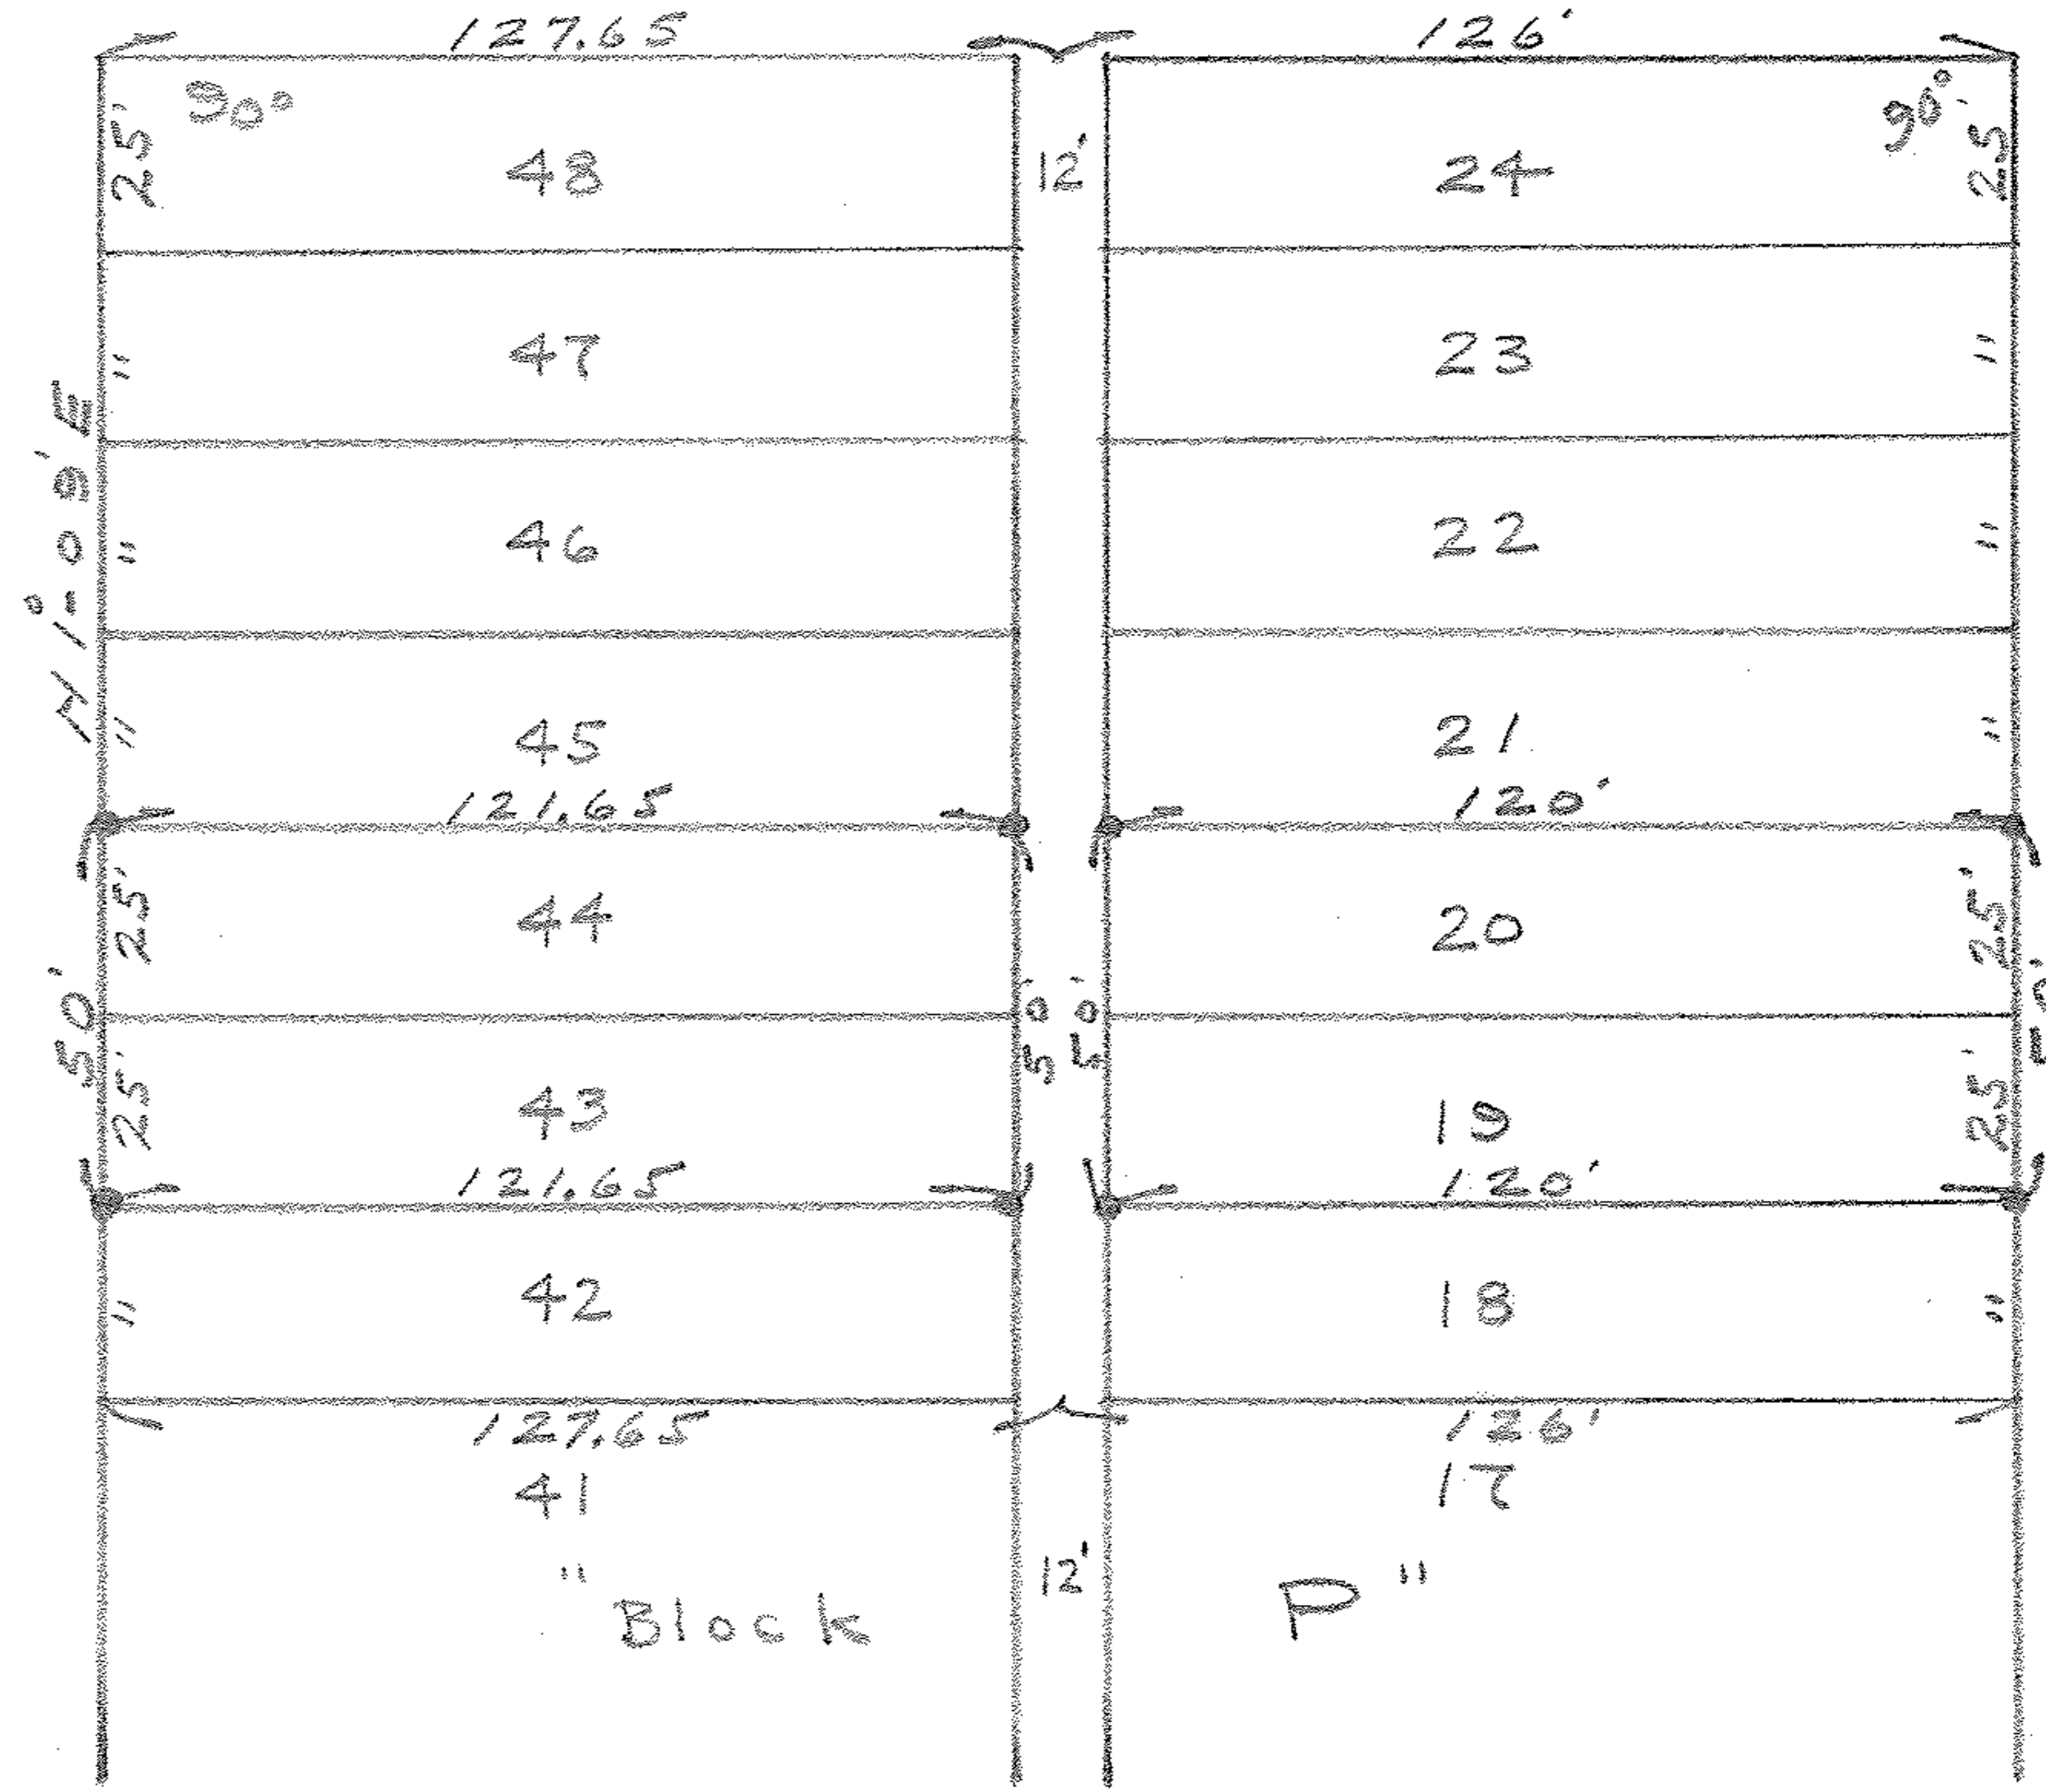 127.65 126'
90° 90°
25' 48 12' 24 25'
" 47 23 "
N 1°-09' E
" 46 22 "
" 45 21 "
121.65 120'
25' 44 20 25'
50' 50' 50' 50'
25' 43 19 25'
121.65 120'
" 42 18 "
127.65 126'
41 17
12'
"Block P"